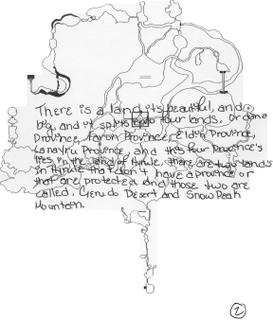 There is a land its beautiful, and
big, and it splits into four lands. Ordona
Province, Faron Province, Eldin Province,
Lanayru Province, and this four Province's
lies in the land of Hyrule, there are two lands
in Hyrule that don't have a province or
that are protected and those two are
called, Gerudo Desert and Snow Peak
Mountain.
2